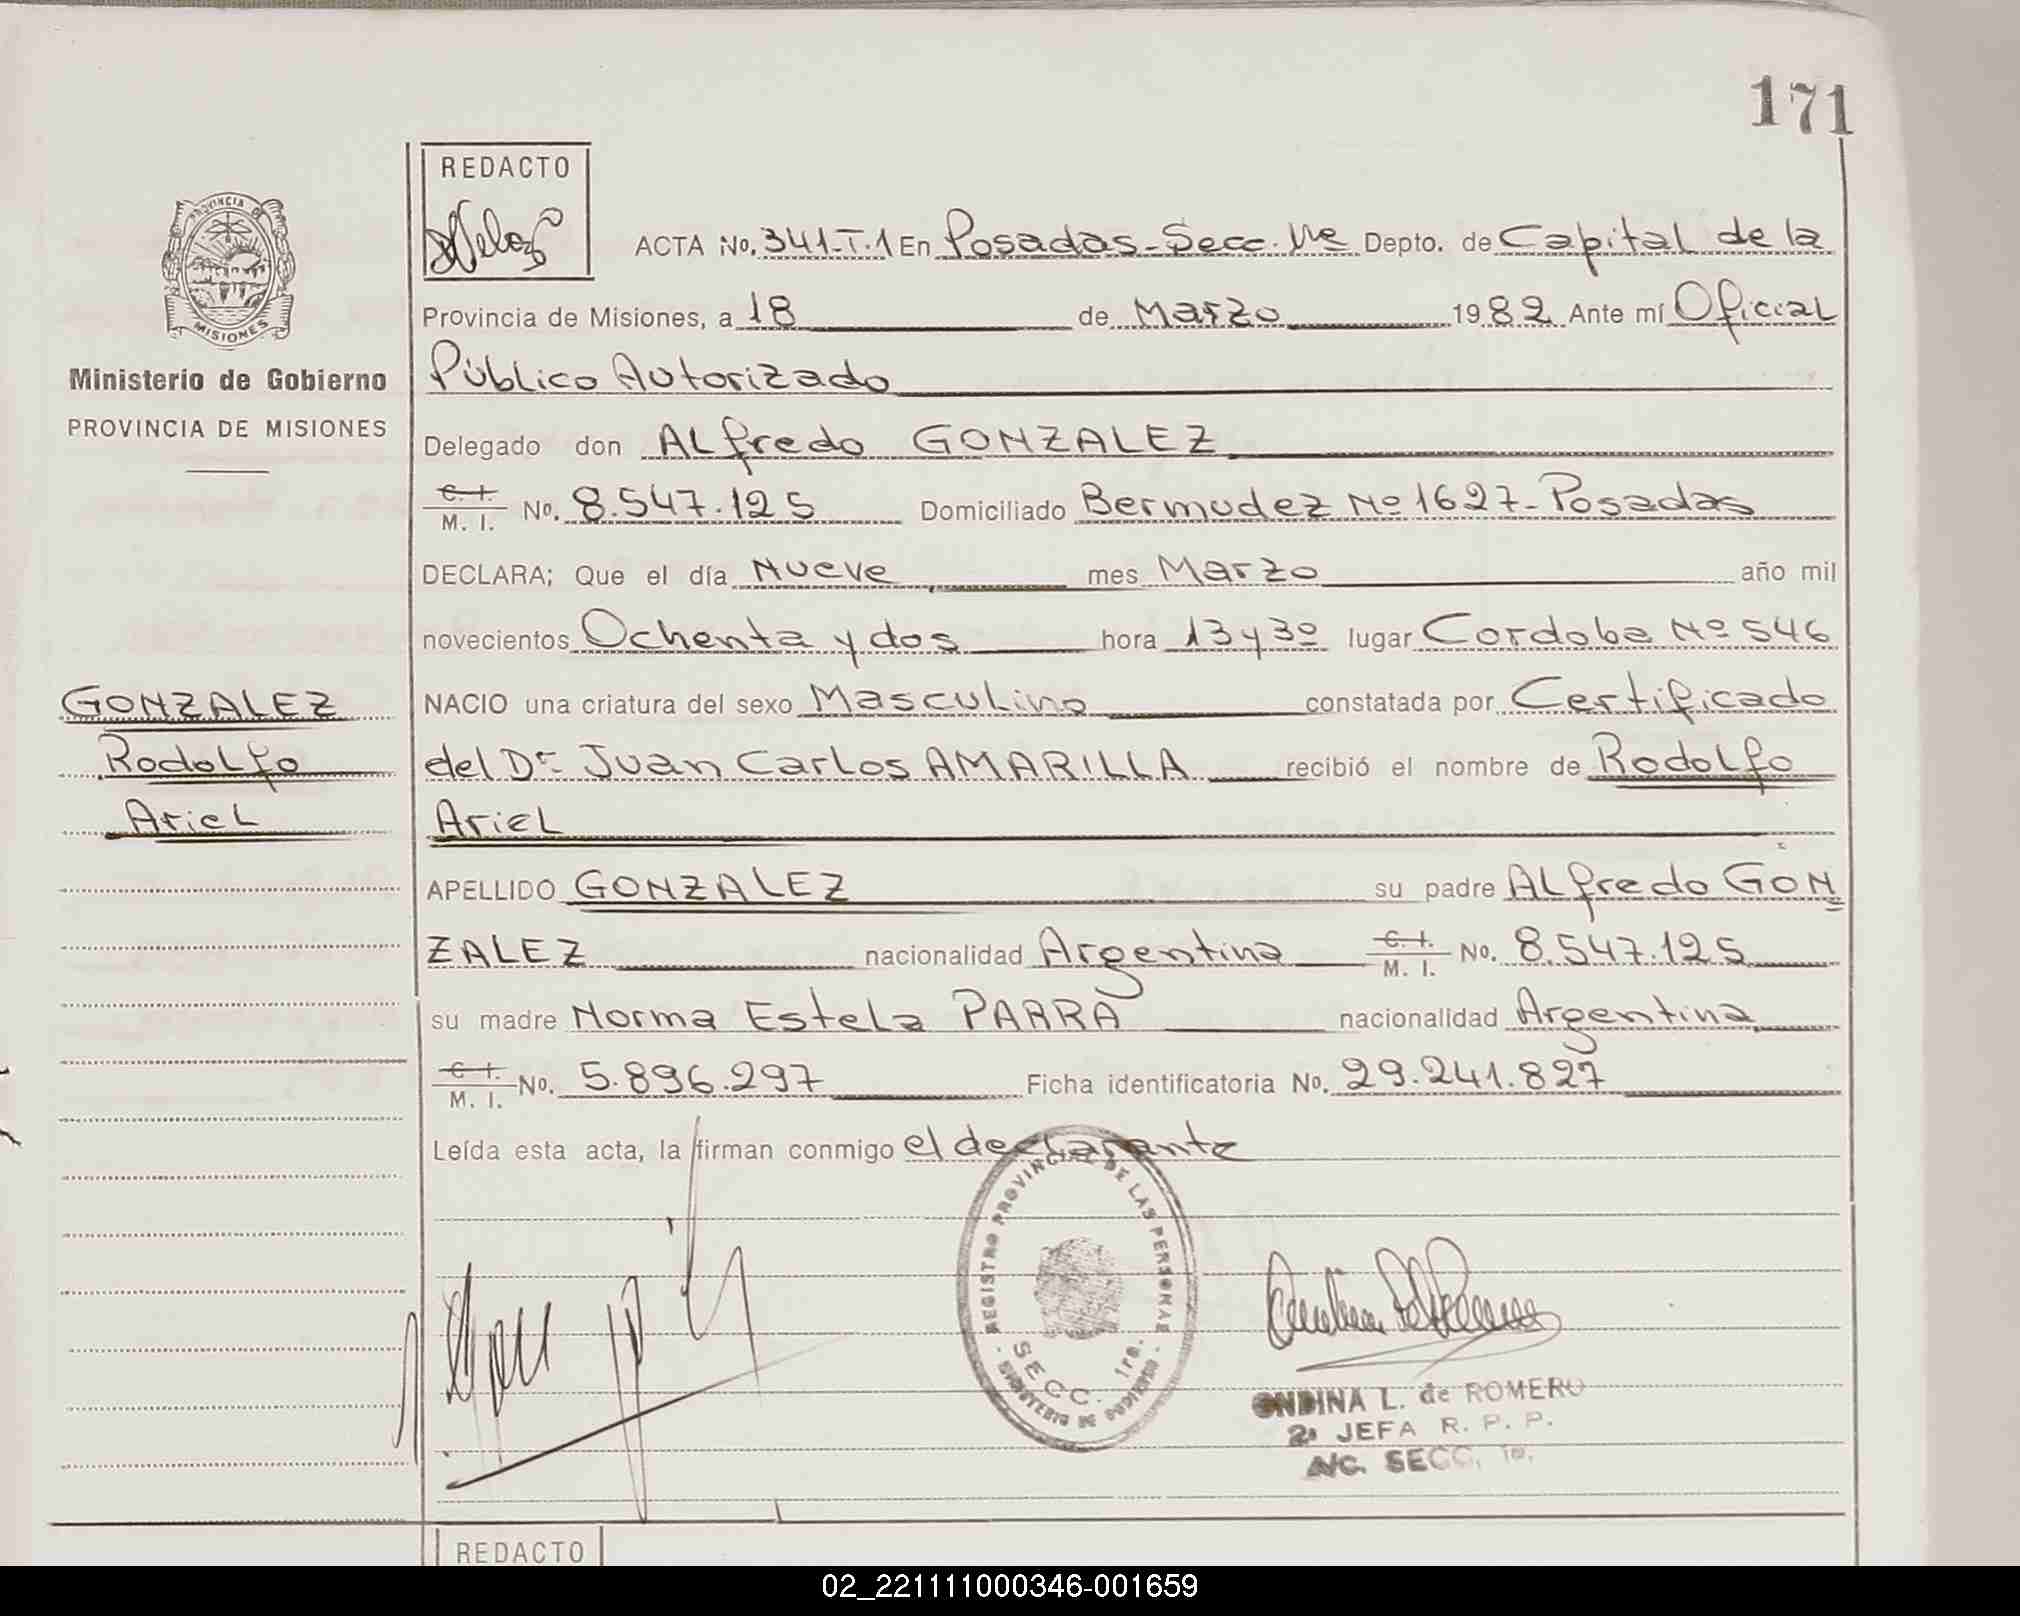 171
REDACTO
PROVINCIA DE
MISIONES
Ministerio de Gobierno
PROVINCIA DE MISIONES
ACTA No. 341-T.1 En Posadas-Secc. 1ra Depto. de Capital de la
Provincia de Misiones, a 18 de Marzo 1982 Ante mí Oficial
Público Autorizado
Delegado don Alfredo GONZALEZ
C. I. / M. I. No. 8.547.125 Domiciliado Bermudez Nº 1627-Posadas
DECLARA; Que el día Nueve mes Marzo año mil
novecientos Ochenta y dos hora 13 y 30 lugar Cordoba Nº 546
GONZALEZ
Rodolfo
Ariel
NACIO una criatura del sexo Masculino constatada por Certificado
del Dr. Juan Carlos AMARILLA recibió el nombre de Rodolfo
Ariel
APELLIDO GONZALEZ su padre Alfredo GON
ZALEZ nacionalidad Argentina C. I. / M. I. No. 8.547.125
su madre Norma Estela PARRA nacionalidad Argentina
C. I. / M. I. No. 5.896.297 Ficha identificatoria No. 29.241.827
Leída esta acta, la firman conmigo el declarante
REGISTRO PROVINCIAL DE LAS PERSONAS
SECC. 1ra.
MINISTERIO DE GOBIERNO
ONDINA L. de ROMERO
2ª JEFA R. P. P.
A/C. SECC. 1a.
REDACTO
02_221111000346-001659